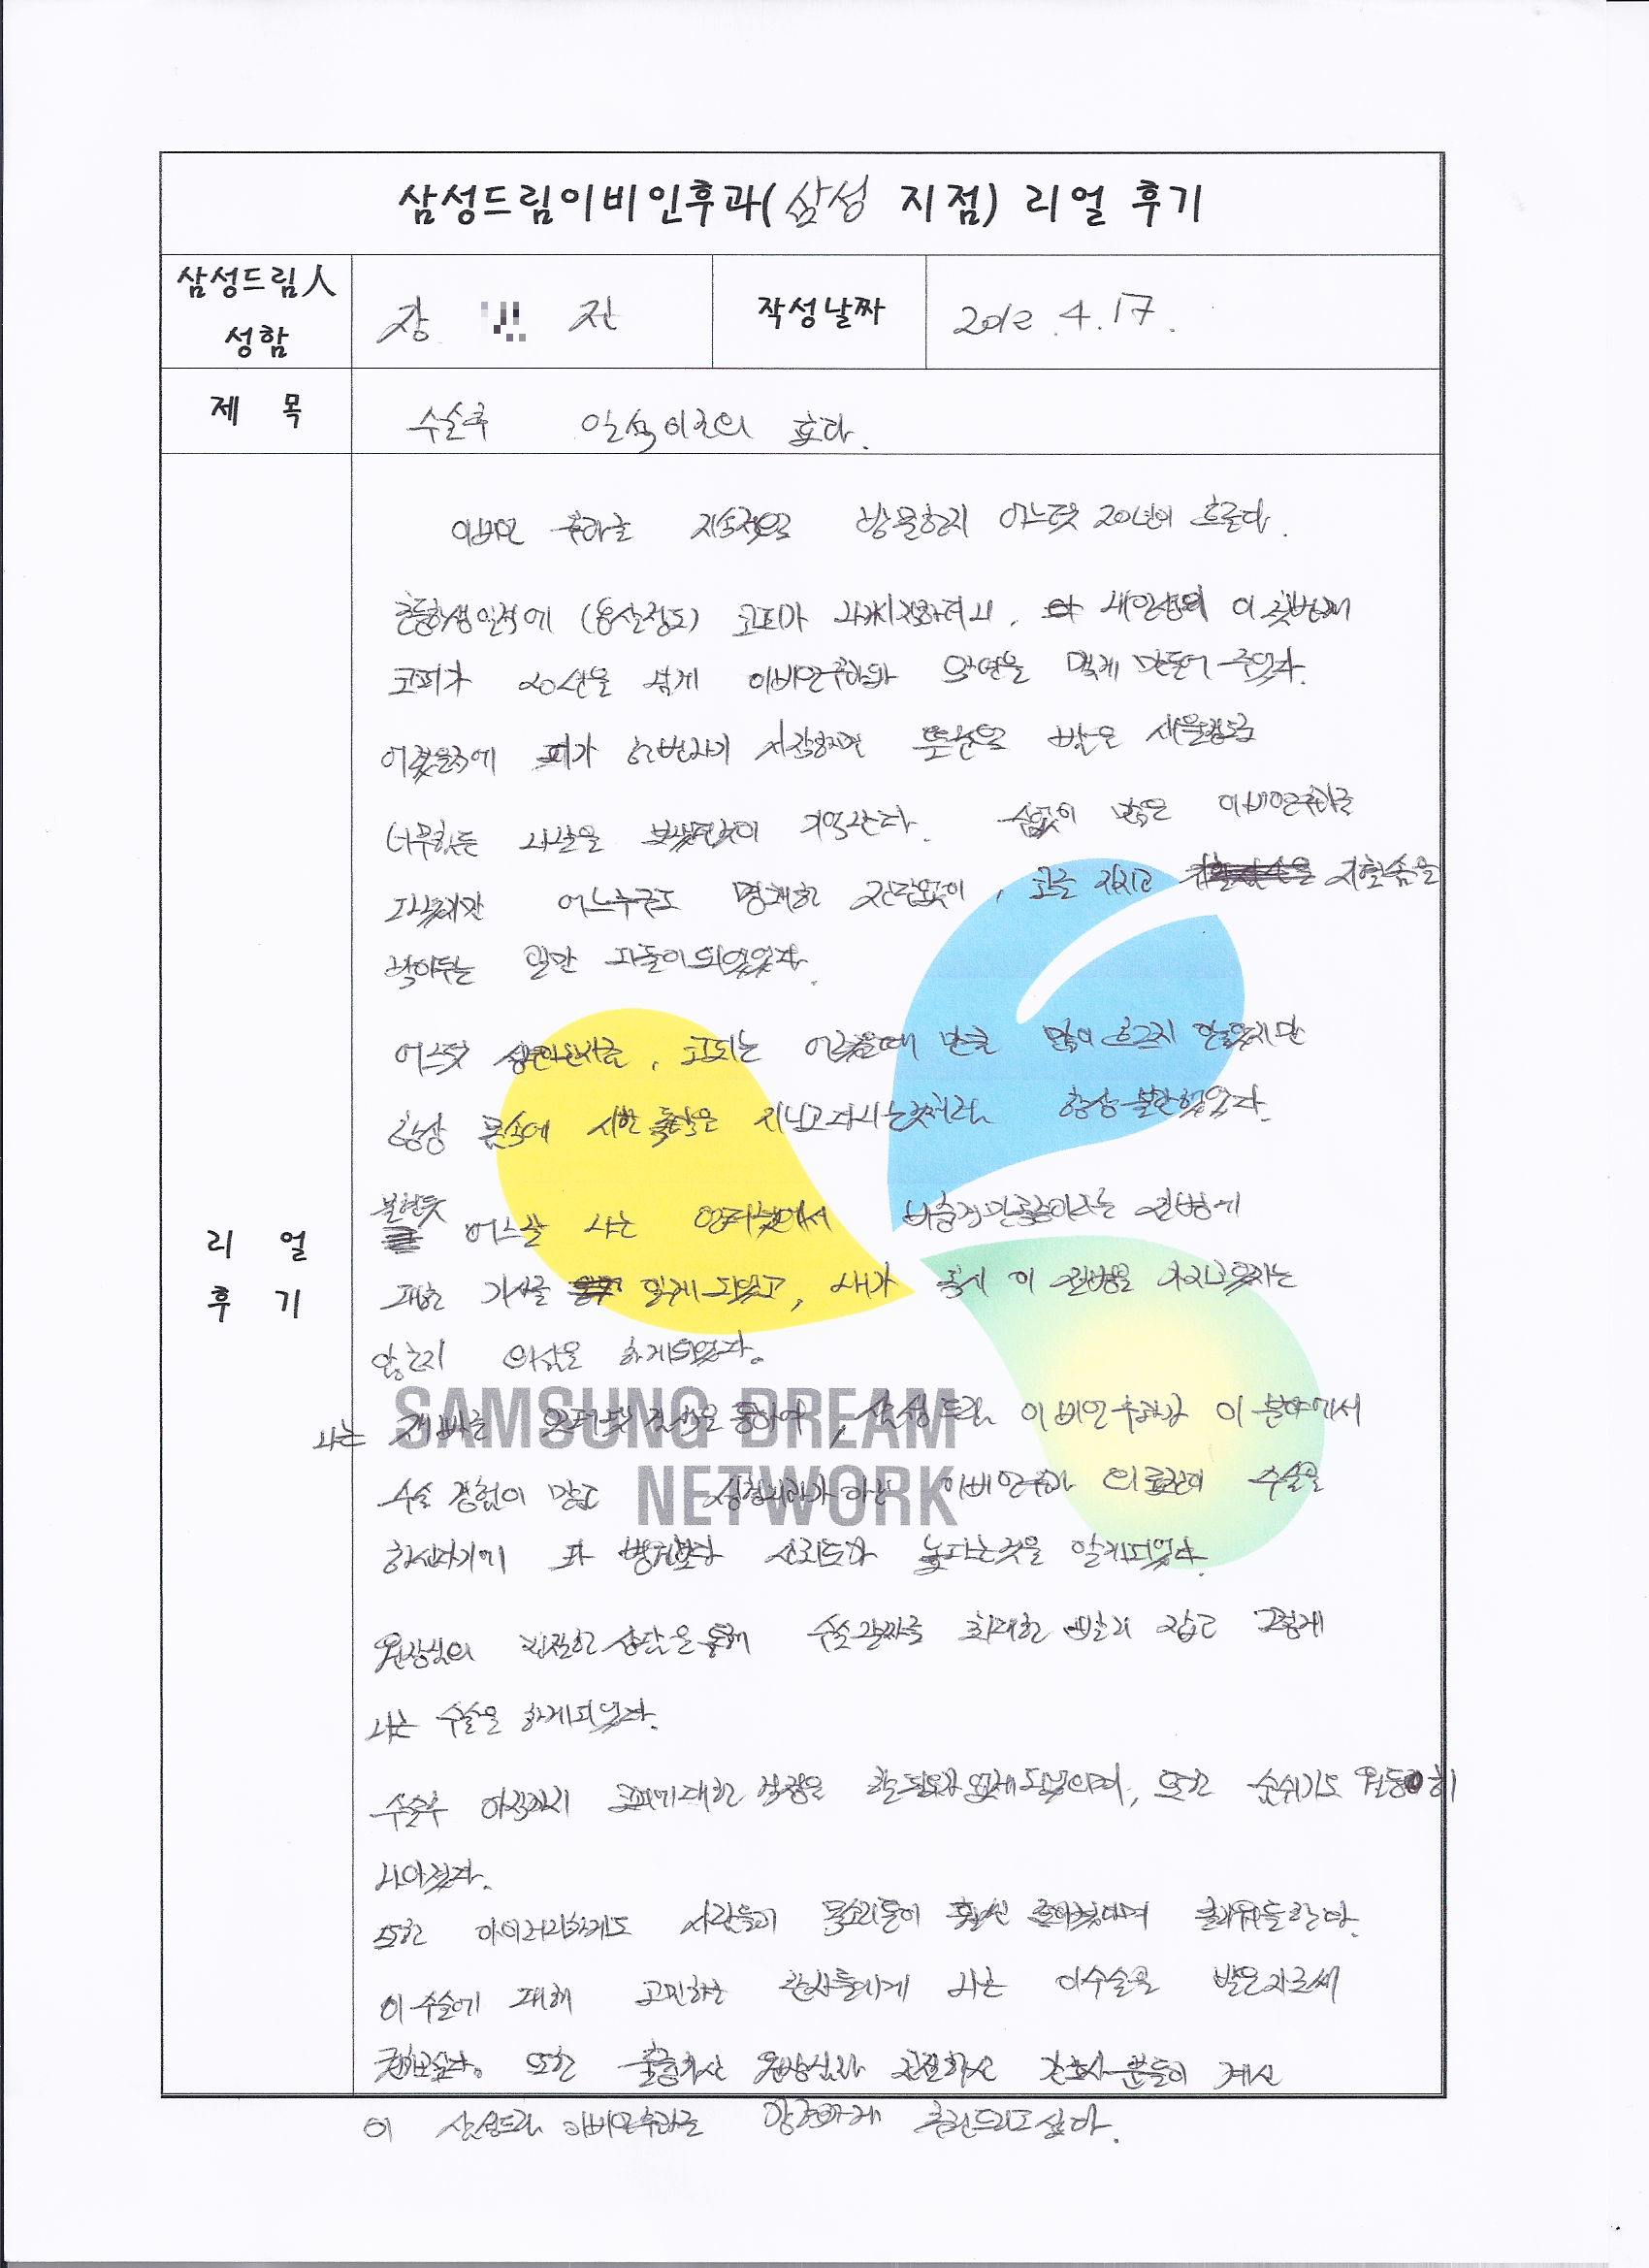 삼성드림이비인후과(삼성 지점) 리얼 후기
삼성드림人
성함
장 진
작성날짜
2012.4.17.
제 목
수술후 일석이조의 효과.
리 얼
후 기
이비인 후과를 지속적으로 방문한지 어느덧 20년이 흐른다.
초등학생인적에 (8살정도) 코피가 나기시작하더니, 내인생의 이 첫번째
코피가 20년을 넘게 이비인후과와 악연을 맺게 만들어 주었다.
어렸을적에 피가 한번나기 시작하면 뿜는
너무힘든 나날을 보냈던것이 기억난다. 수없이 많은 이비인후과를
다녔지만 어느누구도 명쾌한 진단없이, 코를 지지고 지혈솜을
박아두는 일만 되풀이되었었다.
어느덧 코피는 어렸을때 만큼 많이 흐르지 않았지만
항상 몸속에 시한폭탄을 지니고다니는것처럼 항상 불안했었다.
불현듯 어느날 나는 인터넷에서 비중격만곡증이라는 질병에
대한 기사를 읽게되었고, 내가 혹시 이 질병을 가지고있지는
않은지 의심을 하게되었다.
SAMSUNG DREAM
NETWORK
나는 인터넷 검색을 통하여, 삼성드림 이비인후과가 이 분야에서
수술 경험이 많고 성형외과가 아닌 이비인후과 의료진이 수술을
하신다기에 타 병원보다 신뢰도가 높다는것을 알게되었다.
원장님의 친절한 상담을통해 수술날짜를 최대한 빨리 잡고 그렇게
나는 수술을 하게되었다.
수술후 아직까지 코피에대한 걱정을 할필요가 없게되었으며, 또한 숨쉬기도 월등히
나아졌다.
또한 아이러니하게도 사람들이 목소리톤이 훨씬 좋아졌다며 한다.
이 수술에 대해 고민하는 환자들에게 나는 이수술을 받은자로써
권해본다. 또한 훌륭하신 원장님과 친절하신 간호사분들이 계신
이 삼성드림 이비인후과를 강력하게 추천드리고싶다.